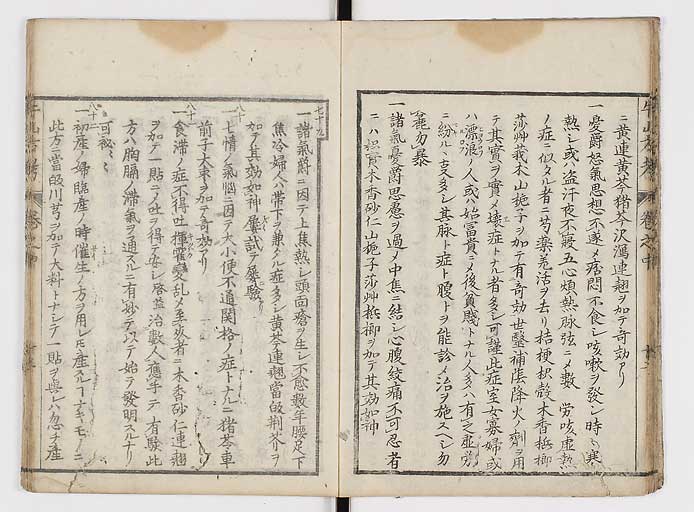 ニ黄連黄芩猪苓沢瀉連翹ヲ加テ奇効アリ
一憂鬱怒氣思想不遂メ痞悶不食シ咳嗽ヲ発シ時々寒
熱シ或盗汗夜不寝五心煩熱脉弦ニメ数 労咳虚熱
ノ症ニ似タル者ニ芍薬羌活ヲ去リ桔梗枳殻木香梹榔
莎艸莪木山梔子ヲ加テ有奇効世醫補陰降火ノ剤ヲ用
テ其實ヲ實メ壊症トナル者多シ可謹此症室女寡婦或
ハ漂浪ノ人或ハ始冨貴ニメ後貧賤トナル人多ハ有之虚労
ニ紛ルヽ叓多シ其脉ト症ト腹トヲ能診メ治ヲ施スヘシ勿
麁勿暴
一諸氣憂鬱思慮ヲ過メ中集ニ結シ心腹絞痛不可忍者
ニハ枳實木香砂仁山梔子莎艸梹榔ヲ加テ其効如神
七十九
一諸氣鬱ニ因テ上焦熱シ頭面瘡ヲ生シ不愈数年腰足下
焦冷婦人ハ帯下ヲ兼タル症多シ黄芩連翹當皈荆芥ヲ
加テ其効如神屢試テ屢驗
八十
一七情ノ氣惱ニ因テ大小便不通関格ノ症トナルニ猪苓車
前子大束ヲ加テ奇効アリ
八十一
一食滞ノ症不得吐揮霍變乱メ至㱱者ニ木香砂仁連翹
ヲ加テ一貼メ吐ヲ得テ安シ啓益治數人應手テ有驗此
方ハ胸膈ノ滞氣ヲ通スルニ有妙テ以テ始テ發明スルナリ
可秘々々
八十二
一初産ノ婦臨産ノ時催生ノ方ヲ用レ𪜈産スルヿナキモノニ
此方ニ當皈川芎ヲ加テ大料トナシテ一貼ヲ與レハ忽チ産